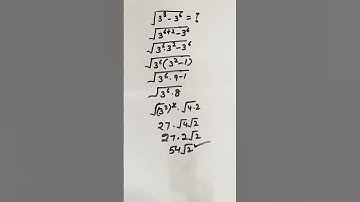 √3⁸ - 3⁶ = ?
√3⁶⁺² - 3⁶
√3⁶·3² - 3⁶
√3⁶(3² - 1)
√3⁶·9-1
√3⁶·8
√(3³)²·√4·2
27·√4√2
27·2√2
54√2 ✓